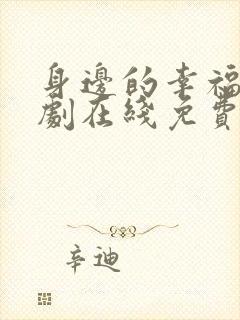 身邊的幸福
劇在綫免費
辛迪